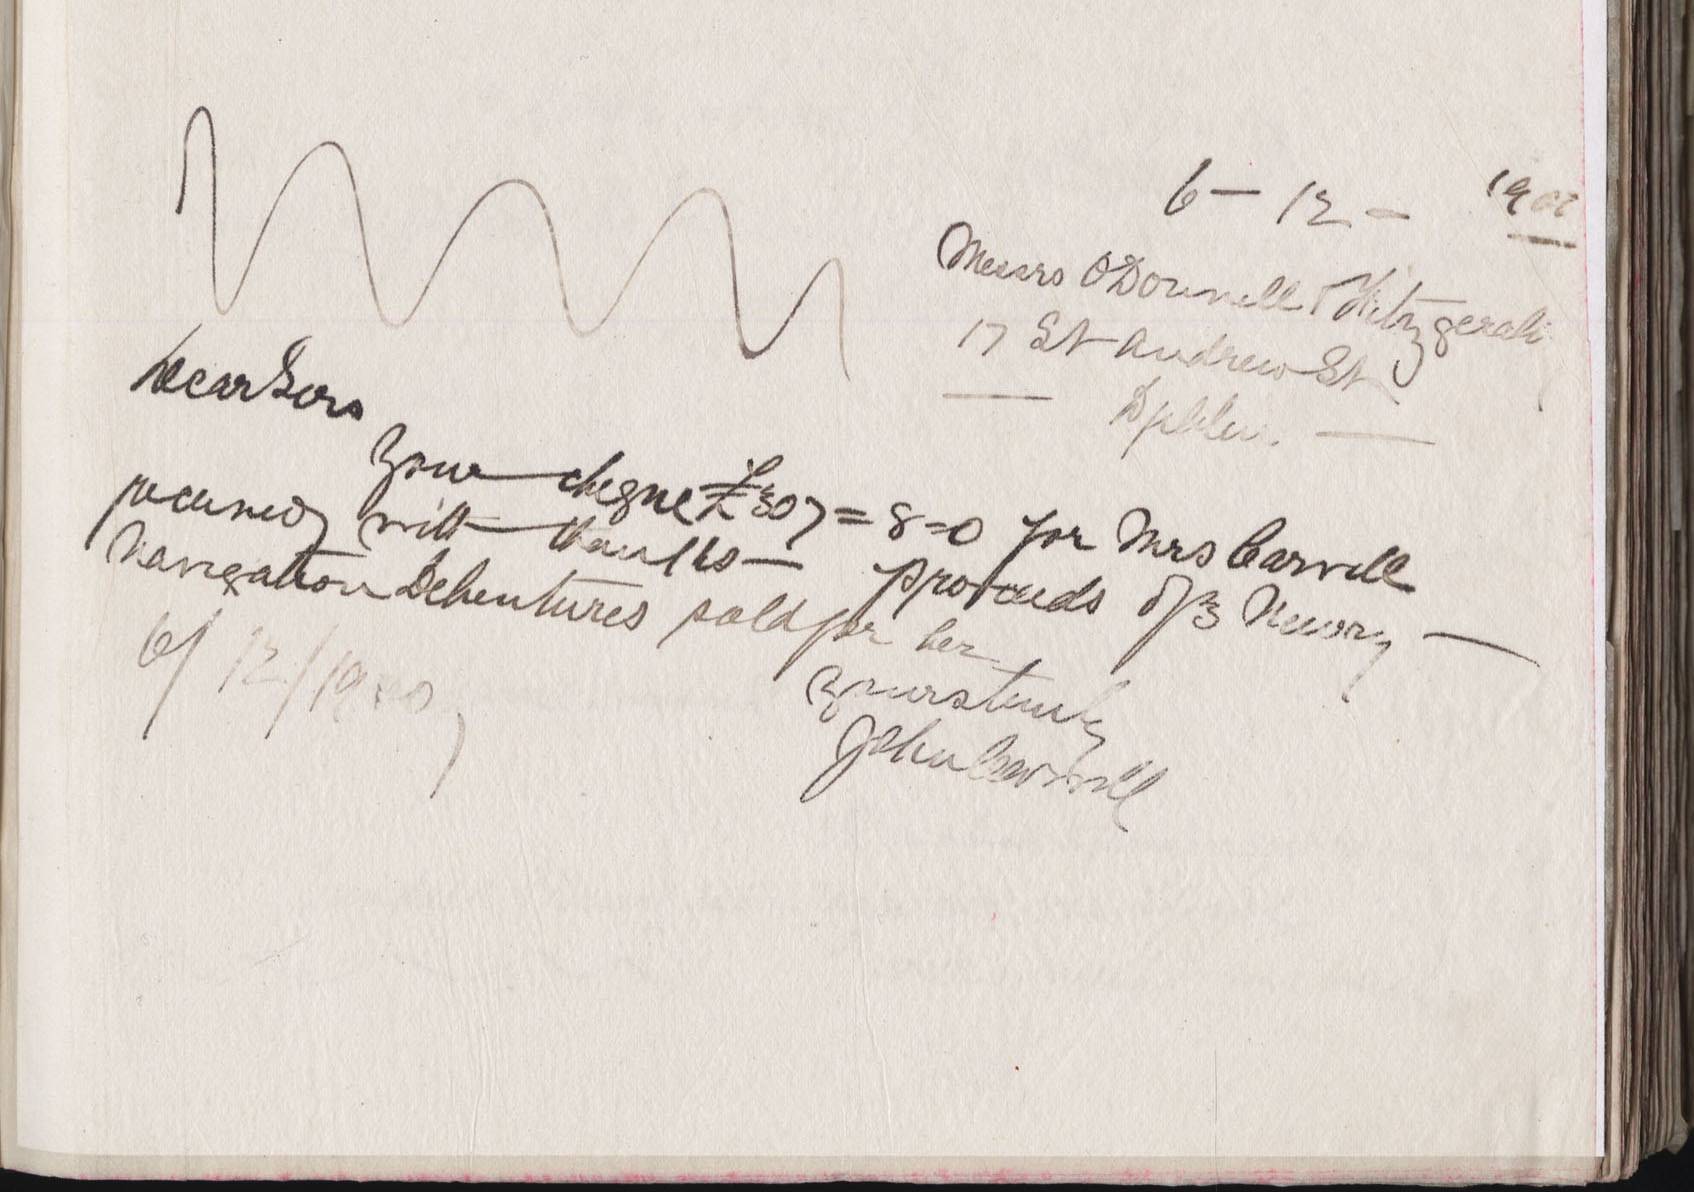 6 - 12 - 190
Messrs O'Donnell & Fitzgerald
17 St Andrew St
Dublin.
Dear Sirs
Your cheque £307=8=0 for Mrs Carvill
received with thanks - proceeds of 3 Newry -
Navigation Debentures sold for her -
6/12/190
Yours truly
John Carvill